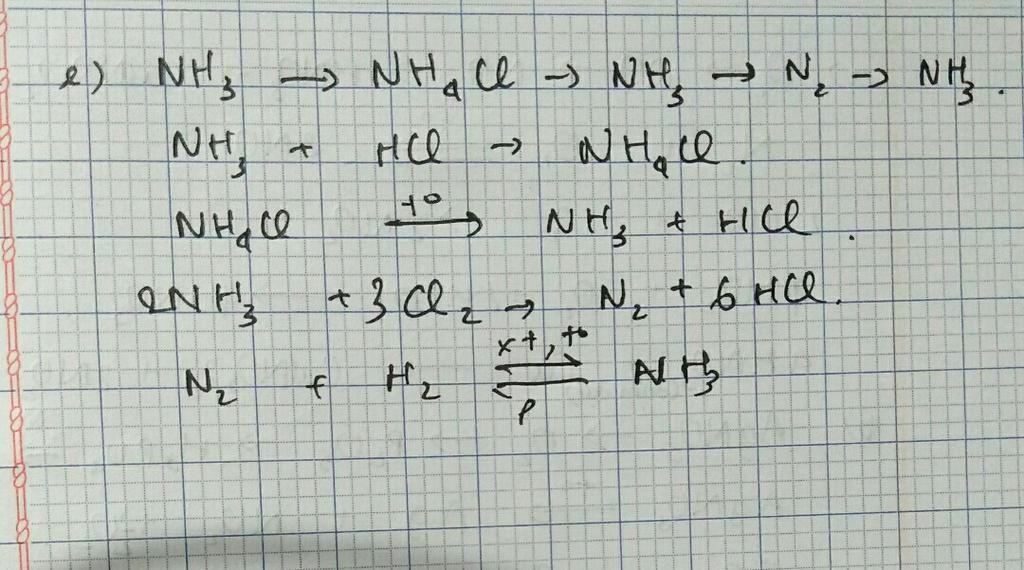 e) NH₃ → NH₄Cl → NH₃ → N₂ → NH₃.
NH₃ + HCl → NH₄Cl.
NH₄Cl —t°→ NH₃ + HCl.
2NH₃ + 3Cl₂ → N₂ + 6HCl.
xt, t°
N₂ + H₂ ⇌ NH₃
p